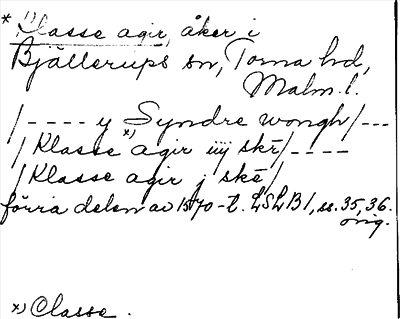 * 1) Klasse agir, åker i
Bjällerups sn, Torna hd,
Malm. l.
/---- y Syndre wongh/---
/Klasse x) agir iiij skr/----
/Klasse agir j skr/
förra delen av 1570-t. LSLB1, ss. 35, 36.
orig.
x) Classe.